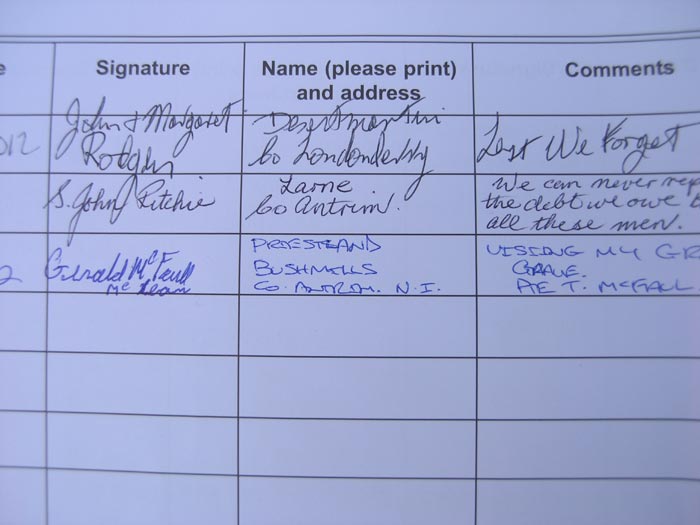 e Signature Name (please print) and address Comments
012 John & Margaret Rodgers Desertmartin Co Londonderry Lest We Forget
S. John Ritchie Larne Co Antrim. We can never rep the debt we owe t all these men.
2 Gerald Mc PRIESTLAND BUSHMILLS CO. ANTRIM. N.I. VISSING MY GR GRAVE. PTE T. MCFALL